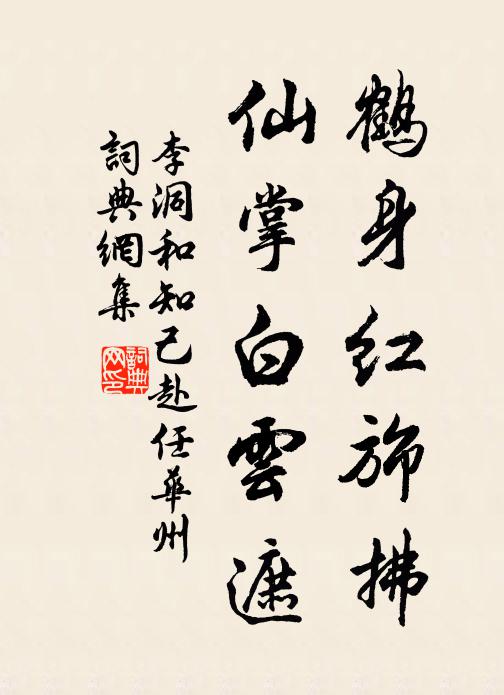 鶴身紅旆拂
仙掌白雲遮
李洞和知己赴任華州
詞典網集
詞典网印